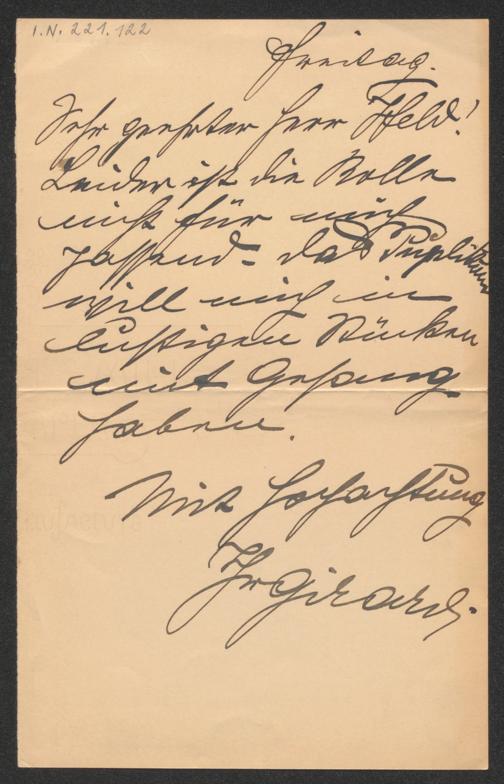 I.N. 221.122
Freitag.
Sehr geehrter Herr Held!
Leider ist die Rolle
nicht für mich
passend - das Puplikum
will mich in
lustigen Stücken
mit Gesang
haben.
Mit Hochachtung
Ihr Girardi